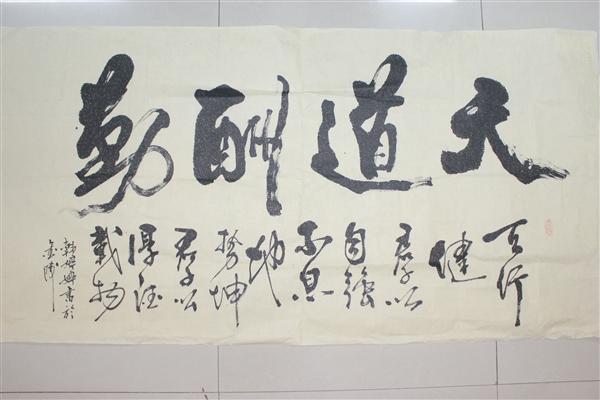 天道酬勤
天行
健
君子以
自强
不息
地
势坤
君子以
厚德
载物
韩婷婷书于